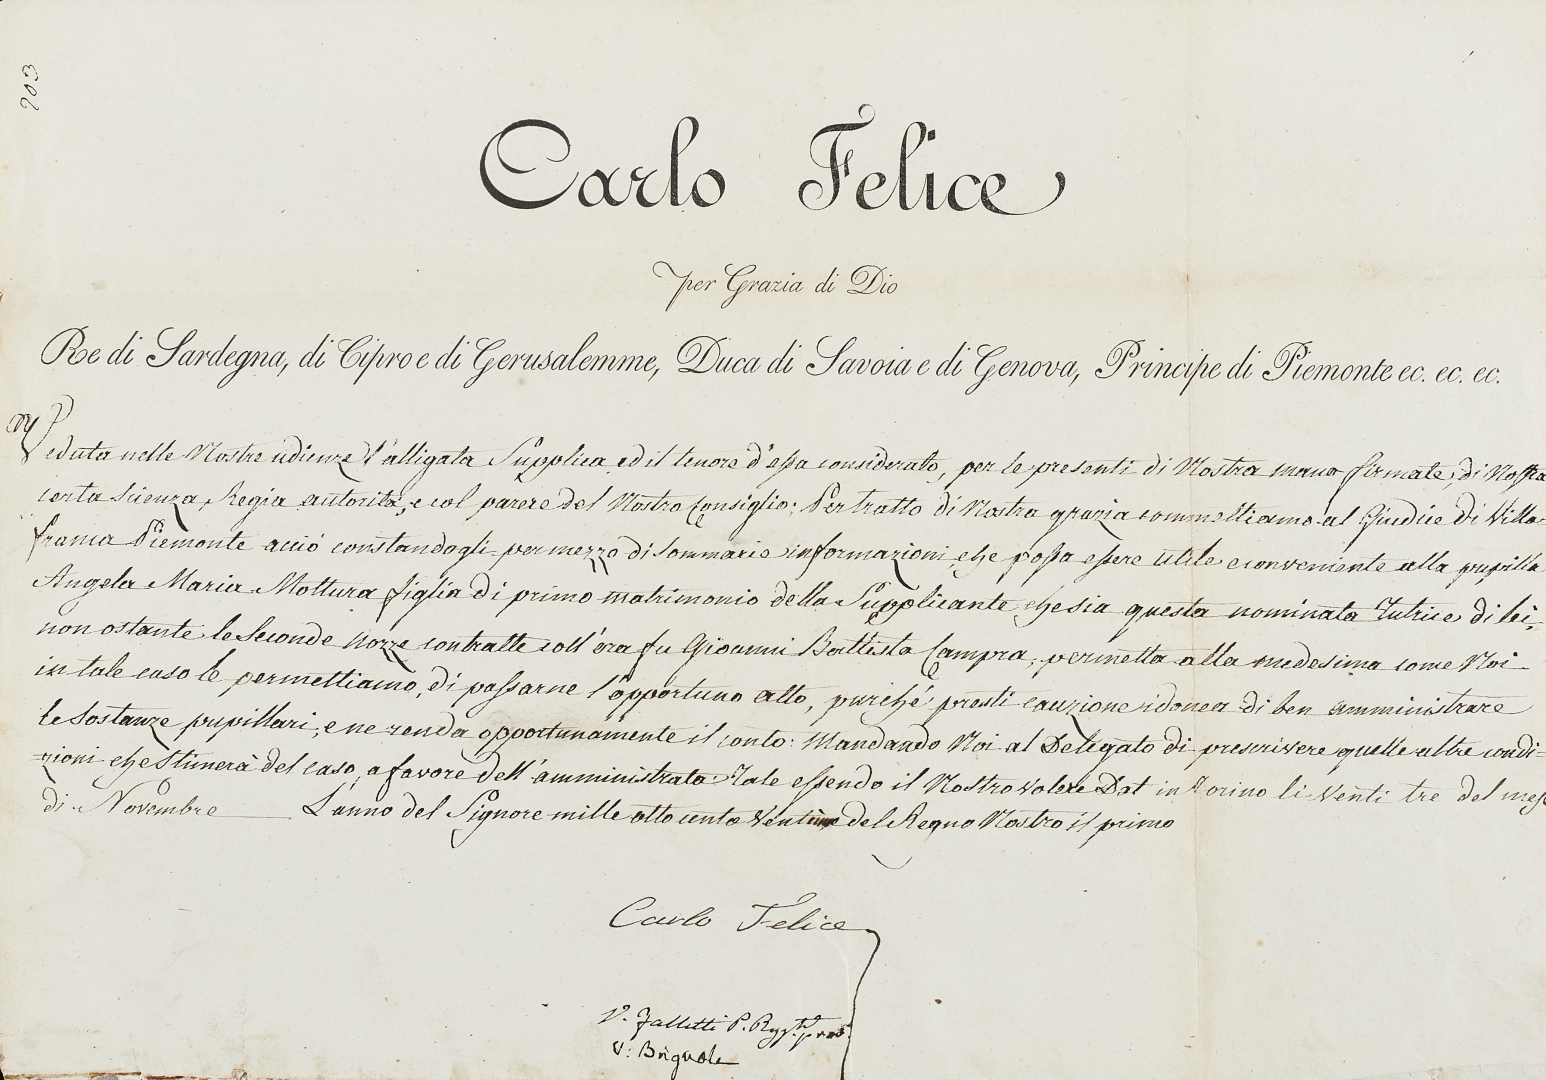 903
Carlo Felice
per Grazia di Dio
Re di Sardegna, di Cipro e di Gerusalemme, Duca di Savoia e di Genova, Principe di Piemonte ec. ec. ec.
Veduta nelle Nostre udienze l'alligata Supplica, ed il tenore d'essa considerato, per le presenti di Nostra mano firmate, di Nostra
certa Scienza, Regia autorità, e col parere del Nostro Consiglio: Per tratto di Nostra grazia commettiamo al Giudice di Villa-
franca Piemonte acciò constandogli per mezzo di sommarie informazioni, che possa essere utile e conveniente alla pupilla
Angela Maria Mottura figlia di primo matrimonio della Supplicante, che sia questa nominata Tutrice di lei,
non ostante le Seconde nozze contratte coll'ora fu Gioanni Battista Campra, permetta alla medesima come Noi
in tale caso le permettiamo, di passarne l'opportuno atto, purché presti cauzione idonea di ben amministrare
le Sostanze pupillari, e ne renda opportunamente il conto: Mandando Noi al Delegato di prescrivere quelle altre condi-
-zioni che Stimerà del caso, a favore dell'amministrata. Tale essendo il Nostro volere Dat in Torino li Venti tre del mese
di Novembre L'anno del Signore mille otto cento Ventuno del Regno Nostro il primo
Carlo Felice
V. Falletti P. Regg.te
V: Brignole